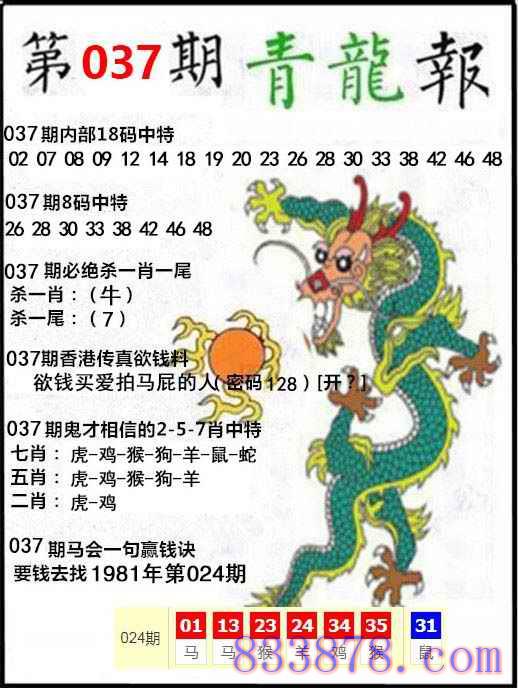 第037期青龍報
037期内部18码中特
02 07 08 09 12 14 18 19 20 23 26 28 30 33 38 42 46 48
037期8码中特
26 28 30 33 38 42 46 48
037期必绝杀一肖一尾
杀一肖：（牛）
杀一尾：（7）
037期香港传真欲钱料
欲钱买爱拍马屁的人(密码128)[开？]
037期鬼才相信的2-5-7肖中特
七肖：虎-鸡-猴-狗-羊-鼠-蛇
五肖：虎-鸡-猴-狗-羊
二肖：虎-鸡
037期马会一句赢钱诀
要钱去找1981年第024期
024期 01 13 23 24 34 35 31
马 马 猴 羊 鸡 猴 鼠
833878.com